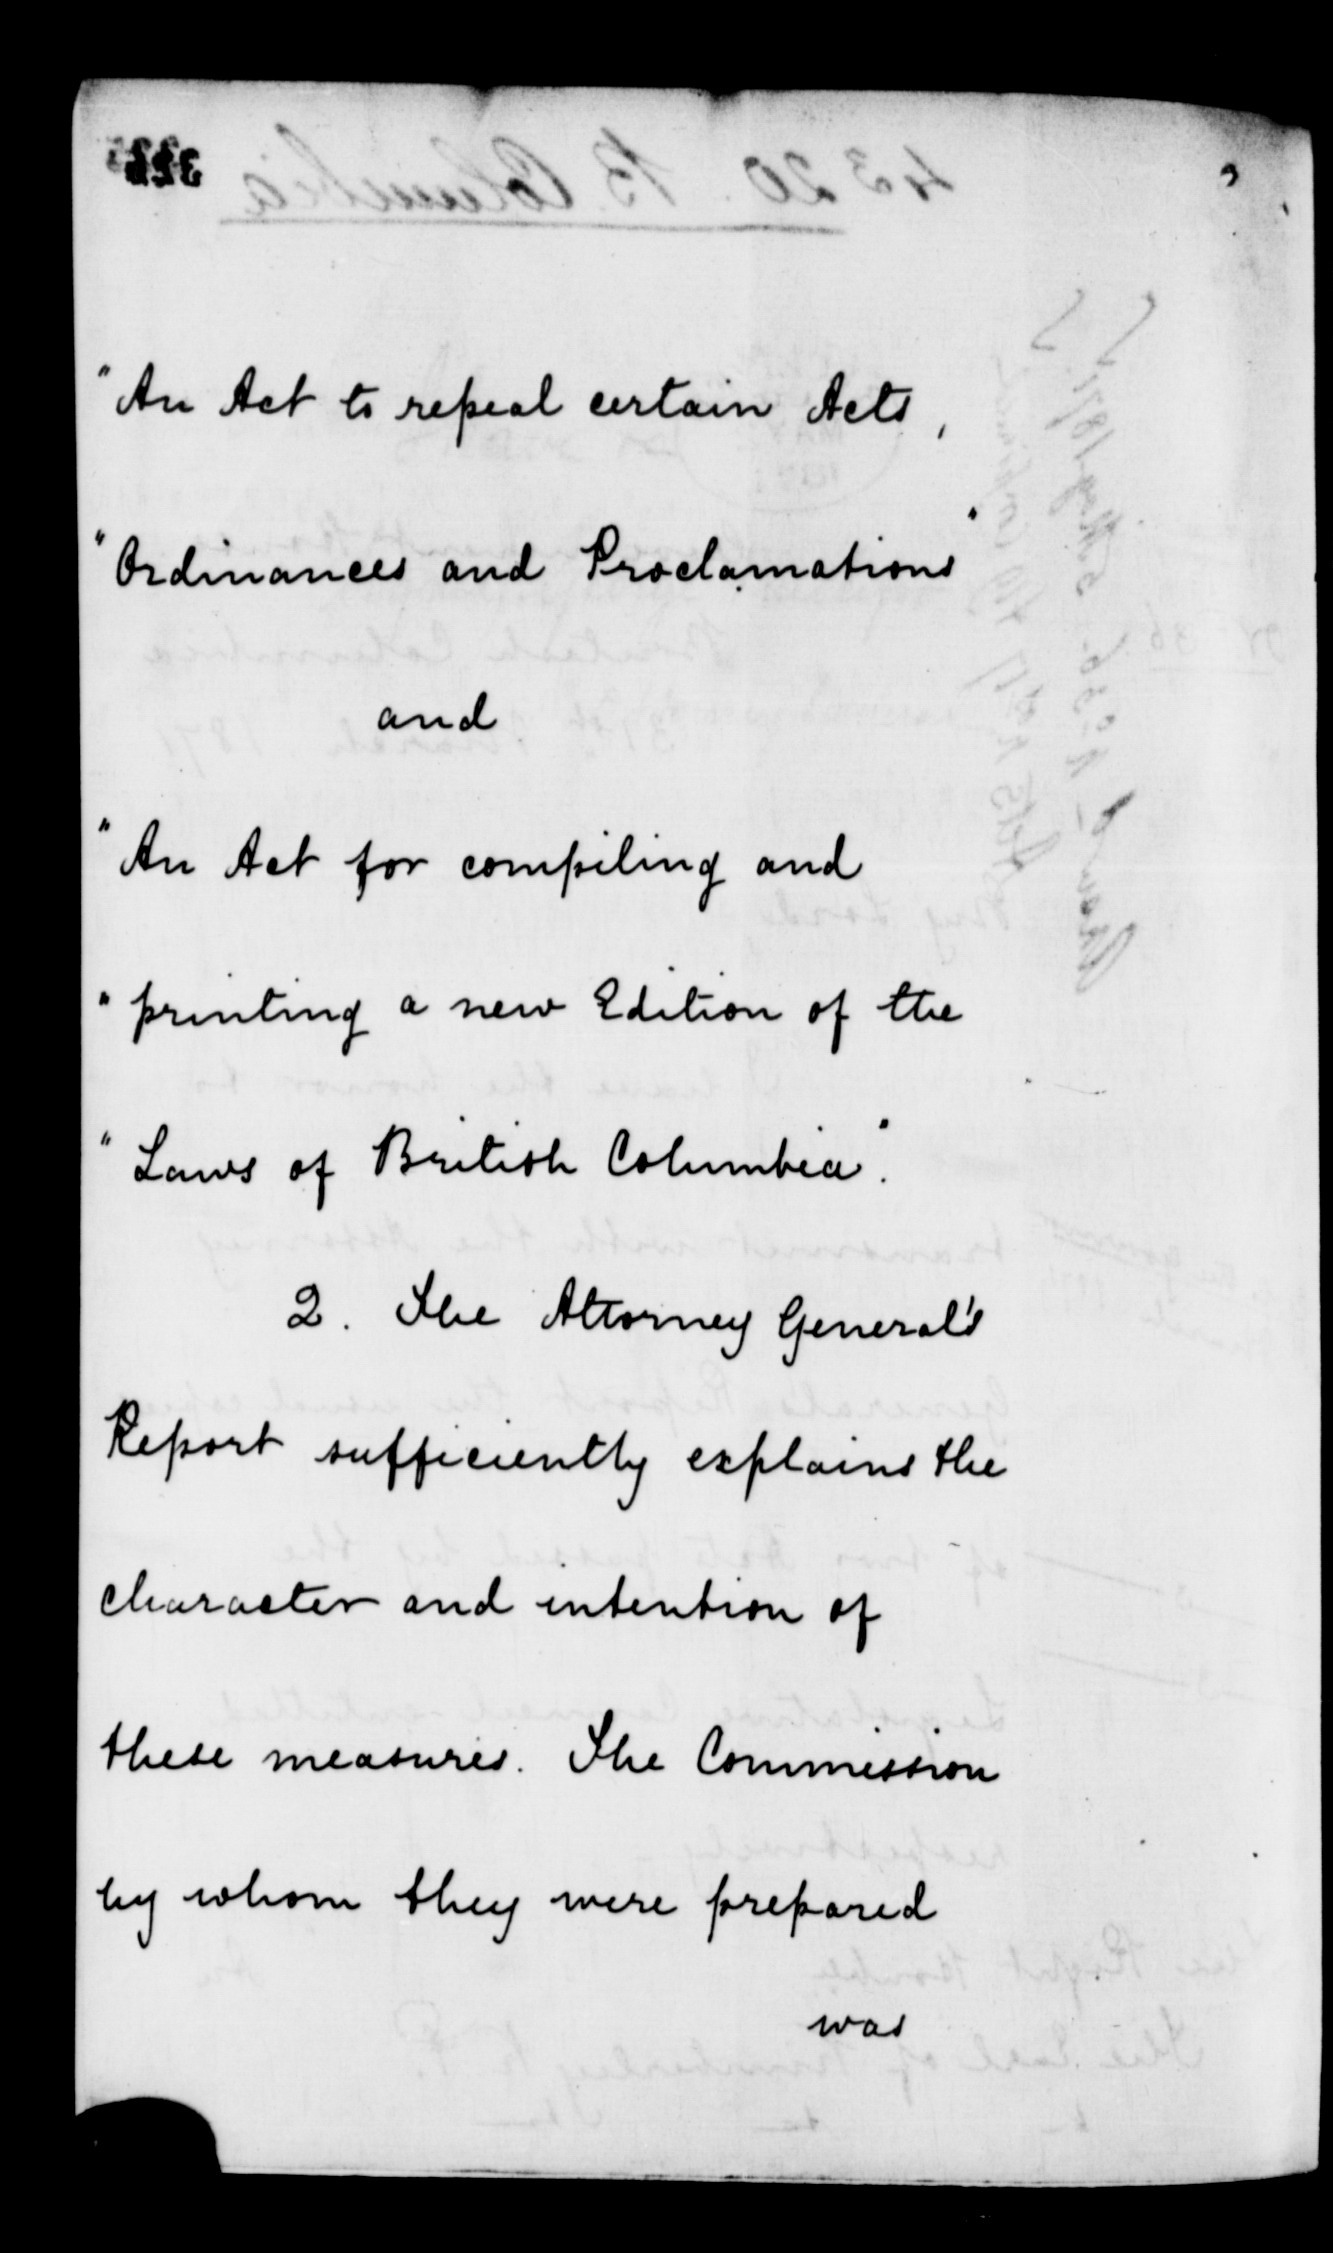 "An Act to repeal certain Acts,
"Ordinances and Proclamations"
and
"An Act for compiling and
"printing a new Edition of the
"Laws of British Columbia".
2. The Attorney General's
Report sufficiently explains the
character and intention of
these measures. The Commission
by whom they were prepared
was